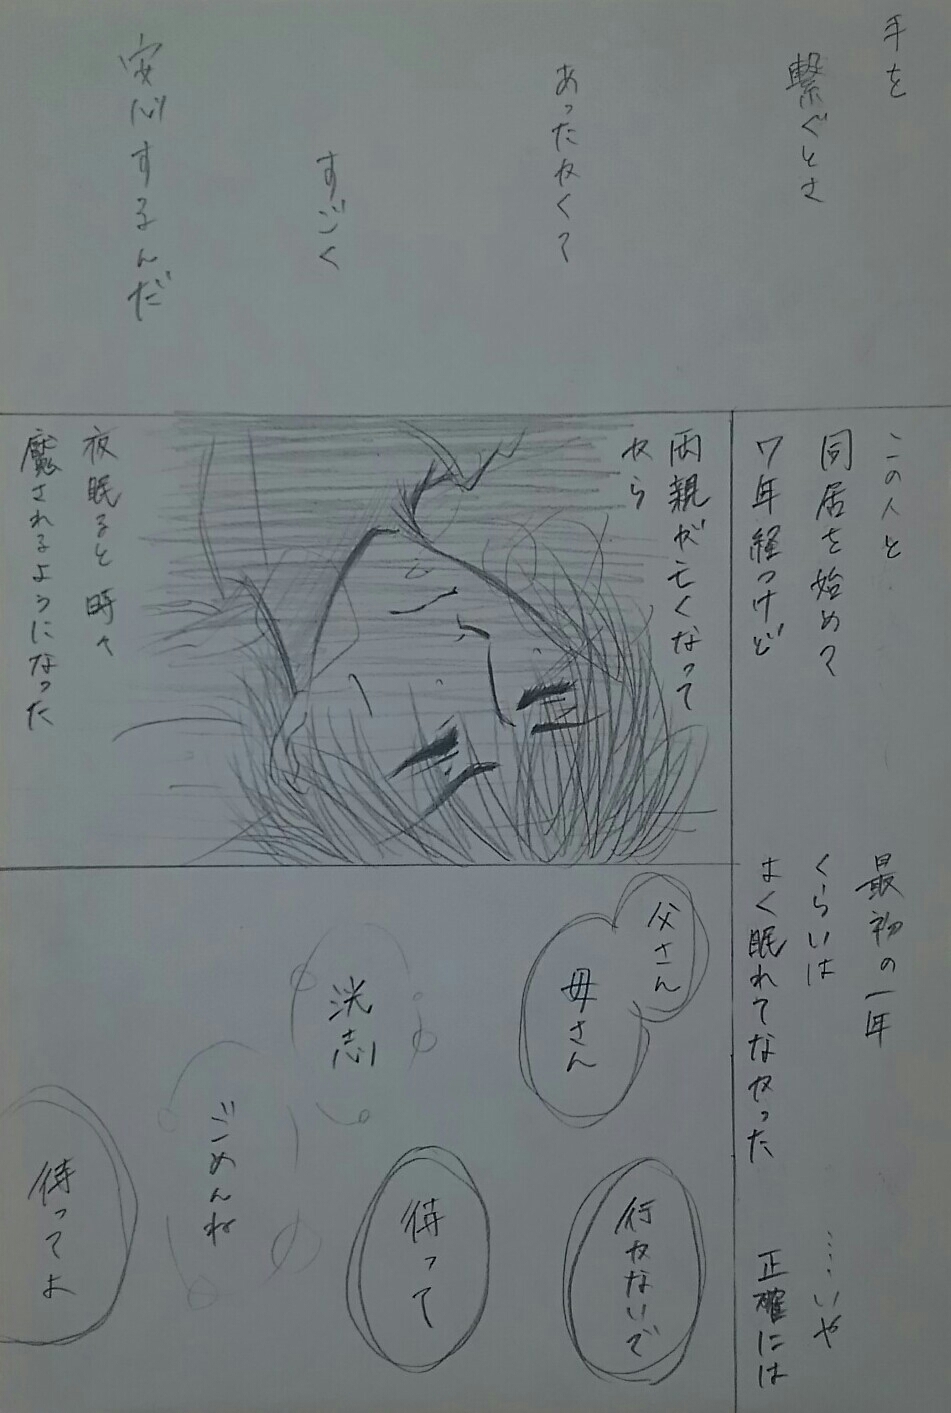 手を
繋ぐとさ
あったかくて
すごく
安心するんだ
この人と
同居を始めて
7年経つけど
最初の一年
くらいは
よく眠れてなかった
……いや
正確には
両親が亡くなって
から
夜眠ると時々
魘されるようになった
父さん
母さん
行かないで
洸志
待って
ごめんね
待ってよ